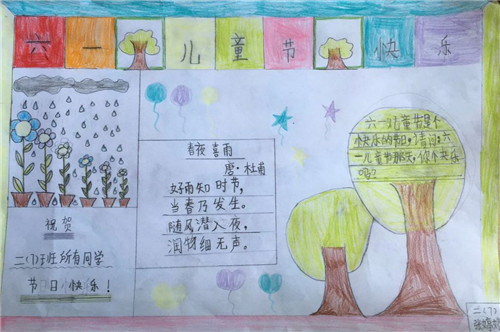 六一儿童节快乐
祝贺
二(7)班所有同学
节日快乐！
春夜喜雨
唐·杜甫
好雨知时节，
当春乃发生。
随风潜入夜，
润物细无声。
六一儿童节是个
快乐的节日,
六
一儿童节那天,你们快乐
吗?
二(7)